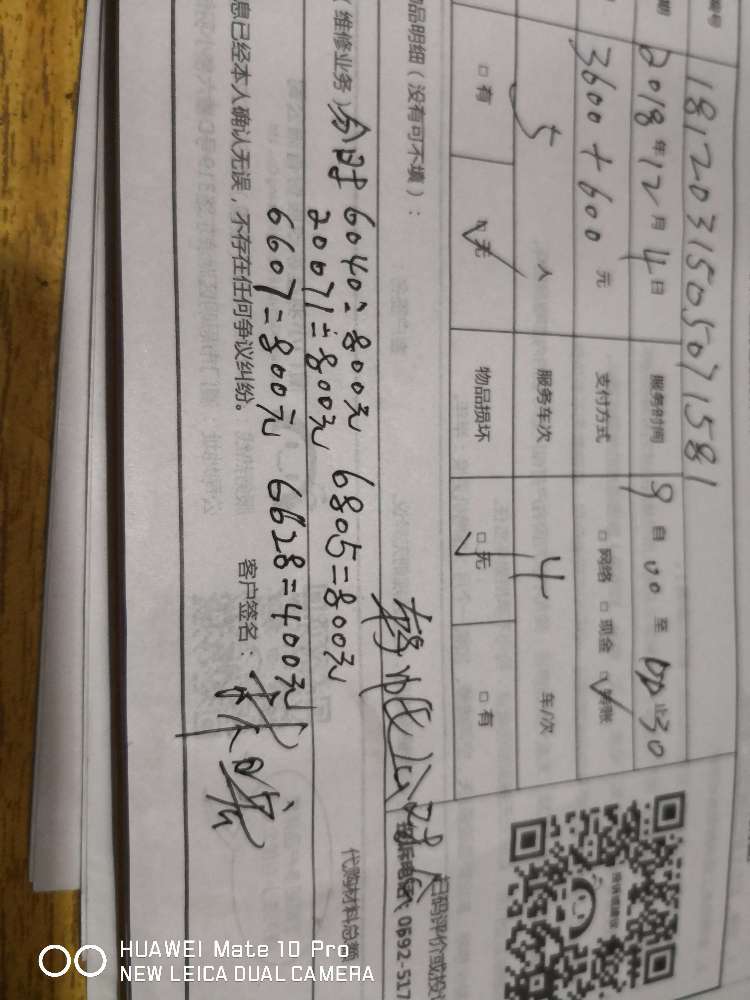 编号 1812031505071581
期 2018 年 12 月 4 日 服务时间 9 自 00 至 止 30
3600+600 元 支付方式 □网络 □现金 ☑转账
5 人 服务车次 4 车/次
□有 ☑无 物品损坏 ☑无 □有
物品明细（没有可不填）：
扫码评价或投
投诉电话：0592-517
（维修业务） 6040=800元 6805=800元 代购材料总额
20071=800元
6607=800元 6628=400元
息已经本人确认无误，不存在任何争议纠纷。 客户签名：
HUAWEI Mate 10 Pro
NEW LEICA DUAL CAMERA